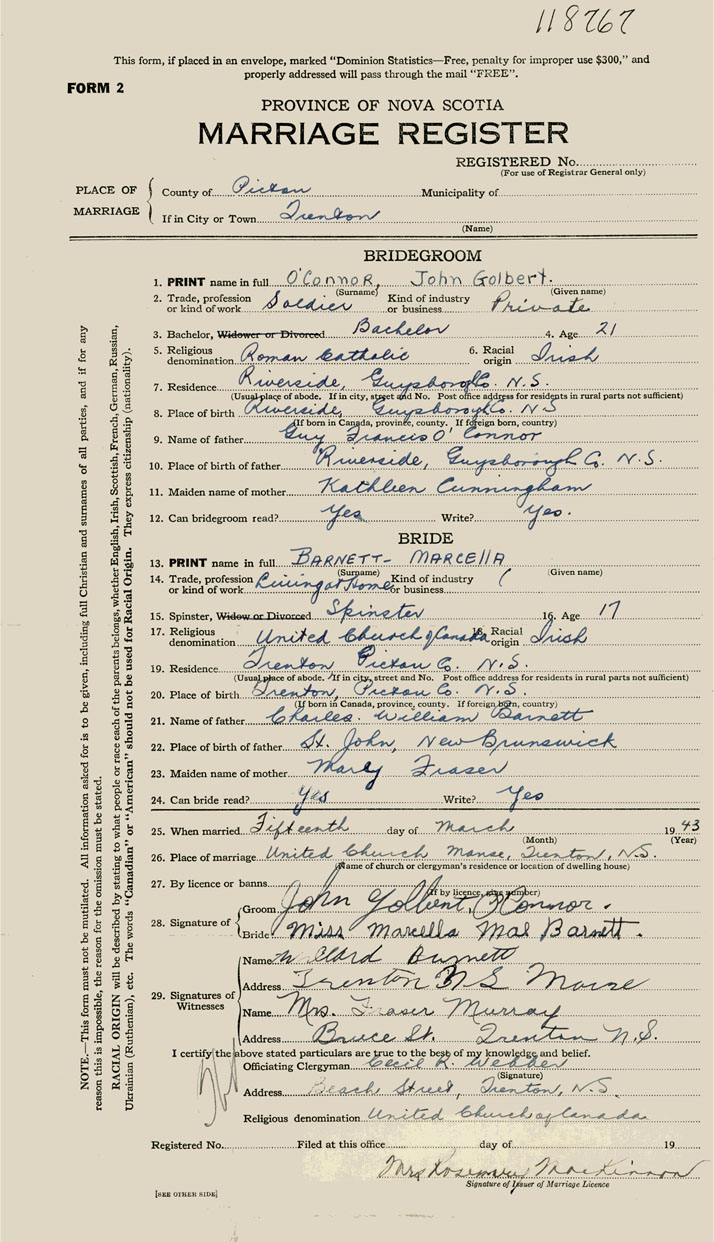 118767
This form, if placed in an envelope, marked "Dominion Statistics—Free, penalty for improper use $300," and
properly addressed will pass through the mail "FREE".
FORM 2
PROVINCE OF NOVA SCOTIA
MARRIAGE REGISTER
REGISTERED No.
(For use of Registrar General only)
PLACE OF MARRIAGE
County of Pictou Municipality of
If in City or Town Trenton
(Name)
BRIDEGROOM
1. PRINT name in full O'Connor, John Golbert.
(Surname) (Given name)
2. Trade, profession or kind of work Soldier Kind of industry or business Private
3. Bachelor, Widower or Divorced Bachelor 4. Age 21
5. Religious denomination Roman Catholic 6. Racial origin Irish
7. Residence Riverside, Guysboro Co. N.S.
(Usual place of abode. If in city, street and No. Post office address for residents in rural parts not sufficient)
8. Place of birth Riverside, Guysborough Co. N S
(If born in Canada, province, county. If foreign born, country)
9. Name of father Guy Francis O'Connor
10. Place of birth of father Riverside, Guysborough Co. N.S.
11. Maiden name of mother Kathleen Cunningham
12. Can bridegroom read? Yes Write? Yes.
BRIDE
13. PRINT name in full BARNETT- MARCEllA
(Surname) (Given name)
14. Trade, profession or kind of work Living at Home Kind of industry or business (
15. Spinster, Widow or Divorced Spinster 16. Age 17
17. Religious denomination United Church of Canada 18. Racial origin Irish
19. Residence Trenton Pictou Co. N.S.
(Usual place of abode. If in city, street and No. Post office address for residents in rural parts not sufficient)
20. Place of birth Trenton, Pictou Co. N.S.
(If born in Canada, province, county. If foreign born, country)
21. Name of father Charles. William Barnett
22. Place of birth of father St. John, New Brunswick
23. Maiden name of mother Mary Fraser
24. Can bride read? Yes Write? Yes
25. When married Fifteenth day of March 1943
(Month) (Year)
26. Place of marriage United Church Manse, Trenton, N.S.
(Name of church or clergyman's residence or location of dwelling house)
27. By licence or banns
(If by licence, give number)
28. Signature of
Groom John Golbert O'Connor.
Bride Miss Marcella Mae Barnett.
29. Signatures of Witnesses
Name Barnett
Address Trenton N S
Name Mrs. Fraser Murray
Address Bruce St. Trenton N.S.
I certify the above stated particulars are true to the best of my knowledge and belief.
Officiating Clergyman Cecil R. Webber
(Signature)
Address Beach Street, Trenton, N.S.
Religious denomination United Church of Canada
Registered No. Filed at this office day of 19
Mrs Rosemary MacKinnon
Signature of Issuer of Marriage Licence
[SEE OTHER SIDE]
NOTE.—This form must not be mutilated. All information asked for is to be given, including full Christian and surnames of all parties, and if for any
reason this is impossible, the reason for the omission must be stated.
RACIAL ORIGIN will be described by stating to what people or race each of the parents belongs, whether English, Irish, Scottish, French, German, Russian,
Ukrainian (Ruthenian), etc. The words "Canadian" or "American" should not be used for Racial Origin. They express citizenship (nationality).